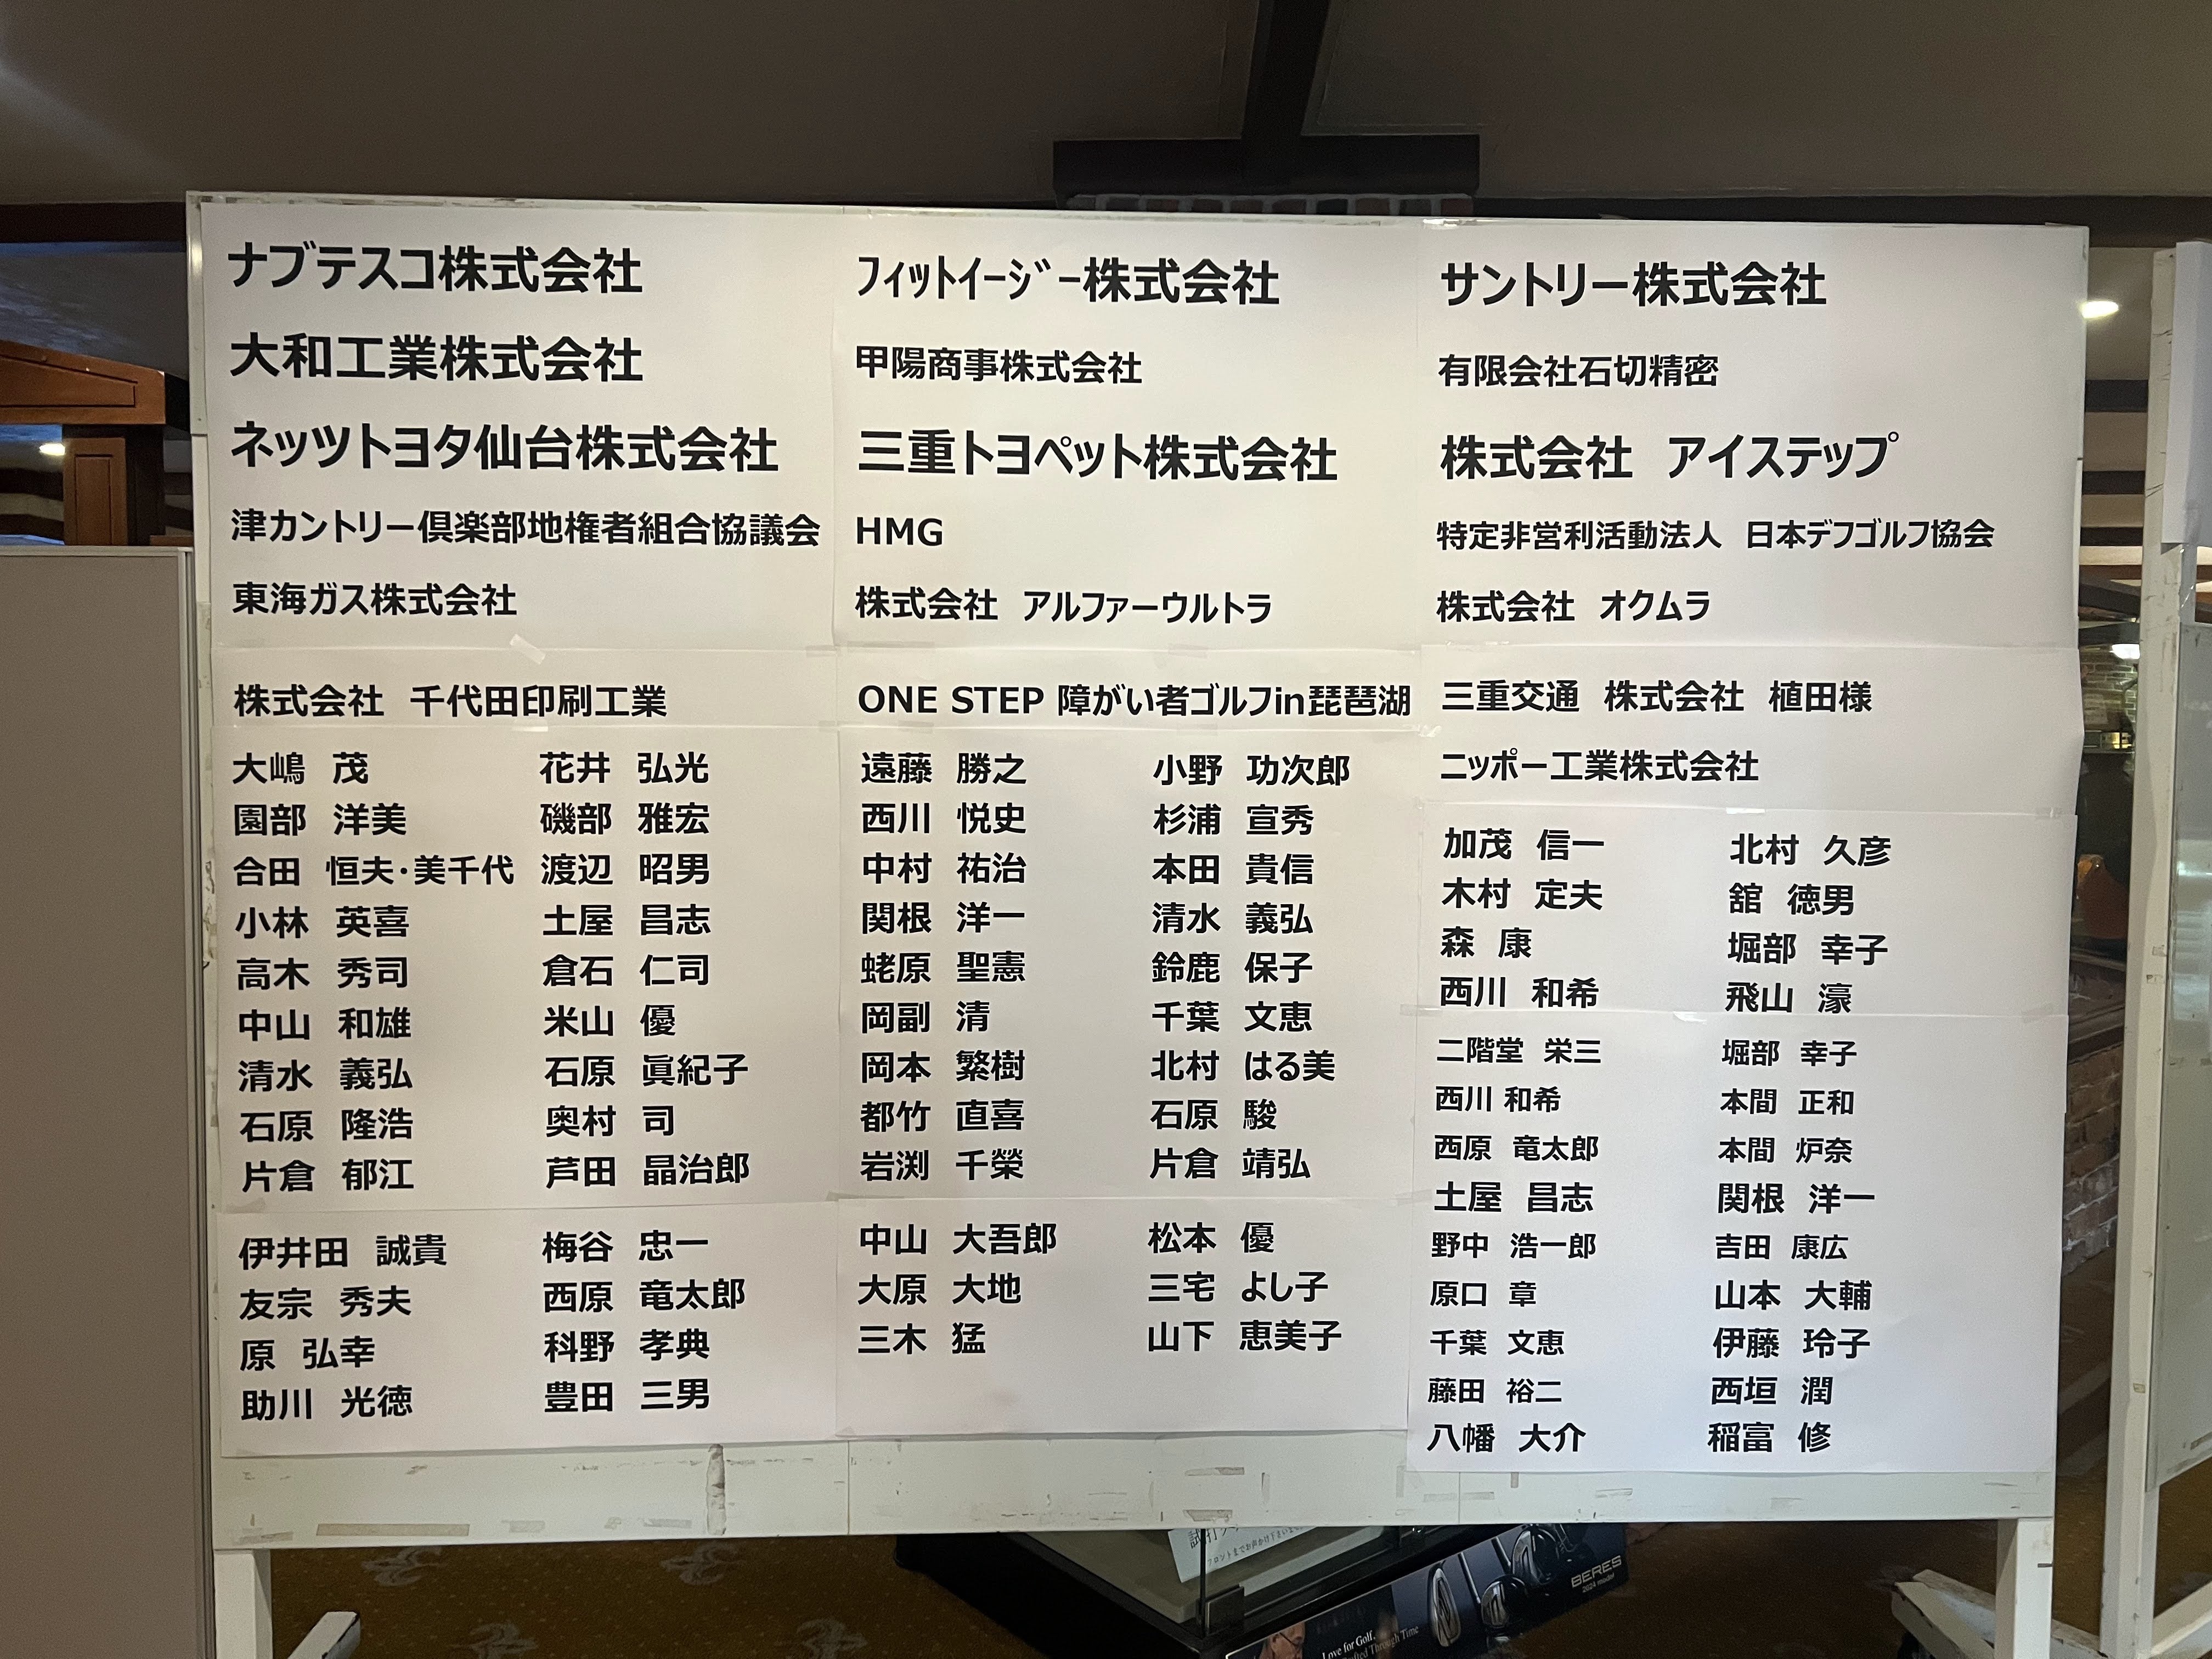 ナブテスコ株式会社
大和工業株式会社
ネッツトヨタ仙台株式会社
津カントリー倶楽部地権者組合協議会
東海ガス株式会社
株式会社 千代田印刷工業
大嶋 茂 花井 弘光
園部 洋美 磯部 雅宏
合田 恒夫・美千代 渡辺 昭男
小林 英喜 土屋 昌志
高木 秀司 倉石 仁司
中山 和雄 米山 優
清水 義弘 石原 眞紀子
石原 隆浩 奥村 司
片倉 郁江 芦田 晶治郎
伊井田 誠貴 梅谷 忠一
友宗 秀夫 西原 竜太郎
原 弘幸 科野 孝典
助川 光徳 豊田 三男
フィットイージー株式会社
甲陽商事株式会社
三重トヨペット株式会社
HMG
株式会社 アルファーウルトラ
ONE STEP 障がい者ゴルフin琵琶湖
遠藤 勝之 小野 功次郎
西川 悦史 杉浦 宣秀
中村 祐治 本田 貴信
関根 洋一 清水 義弘
蛯原 聖憲 鈴鹿 保子
岡副 清 千葉 文恵
岡本 繁樹 北村 はる美
都竹 直喜 石原 駿
岩渕 千榮 片倉 靖弘
中山 大吾郎 松本 優
大原 大地 三宅 よし子
三木 猛 山下 恵美子
サントリー株式会社
有限会社石切精密
株式会社 アイステップ
特定非営利活動法人 日本デフゴルフ協会
株式会社 オクムラ
三重交通 株式会社 植田様
ニッポー工業株式会社
加茂 信一 北村 久彦
木村 定夫 舘 徳男
森 康 堀部 幸子
西川 和希 飛山 濠
二階堂 栄三 堀部 幸子
西川 和希 本間 正和
西原 竜太郎 本間 炉奈
土屋 昌志 関根 洋一
野中 浩一郎 吉田 康広
原口 章 山本 大輔
千葉 文恵 伊藤 玲子
藤田 裕二 西垣 潤
八幡 大介 稲富 修
BERES
2024 model
Love for Golf,
Through Time